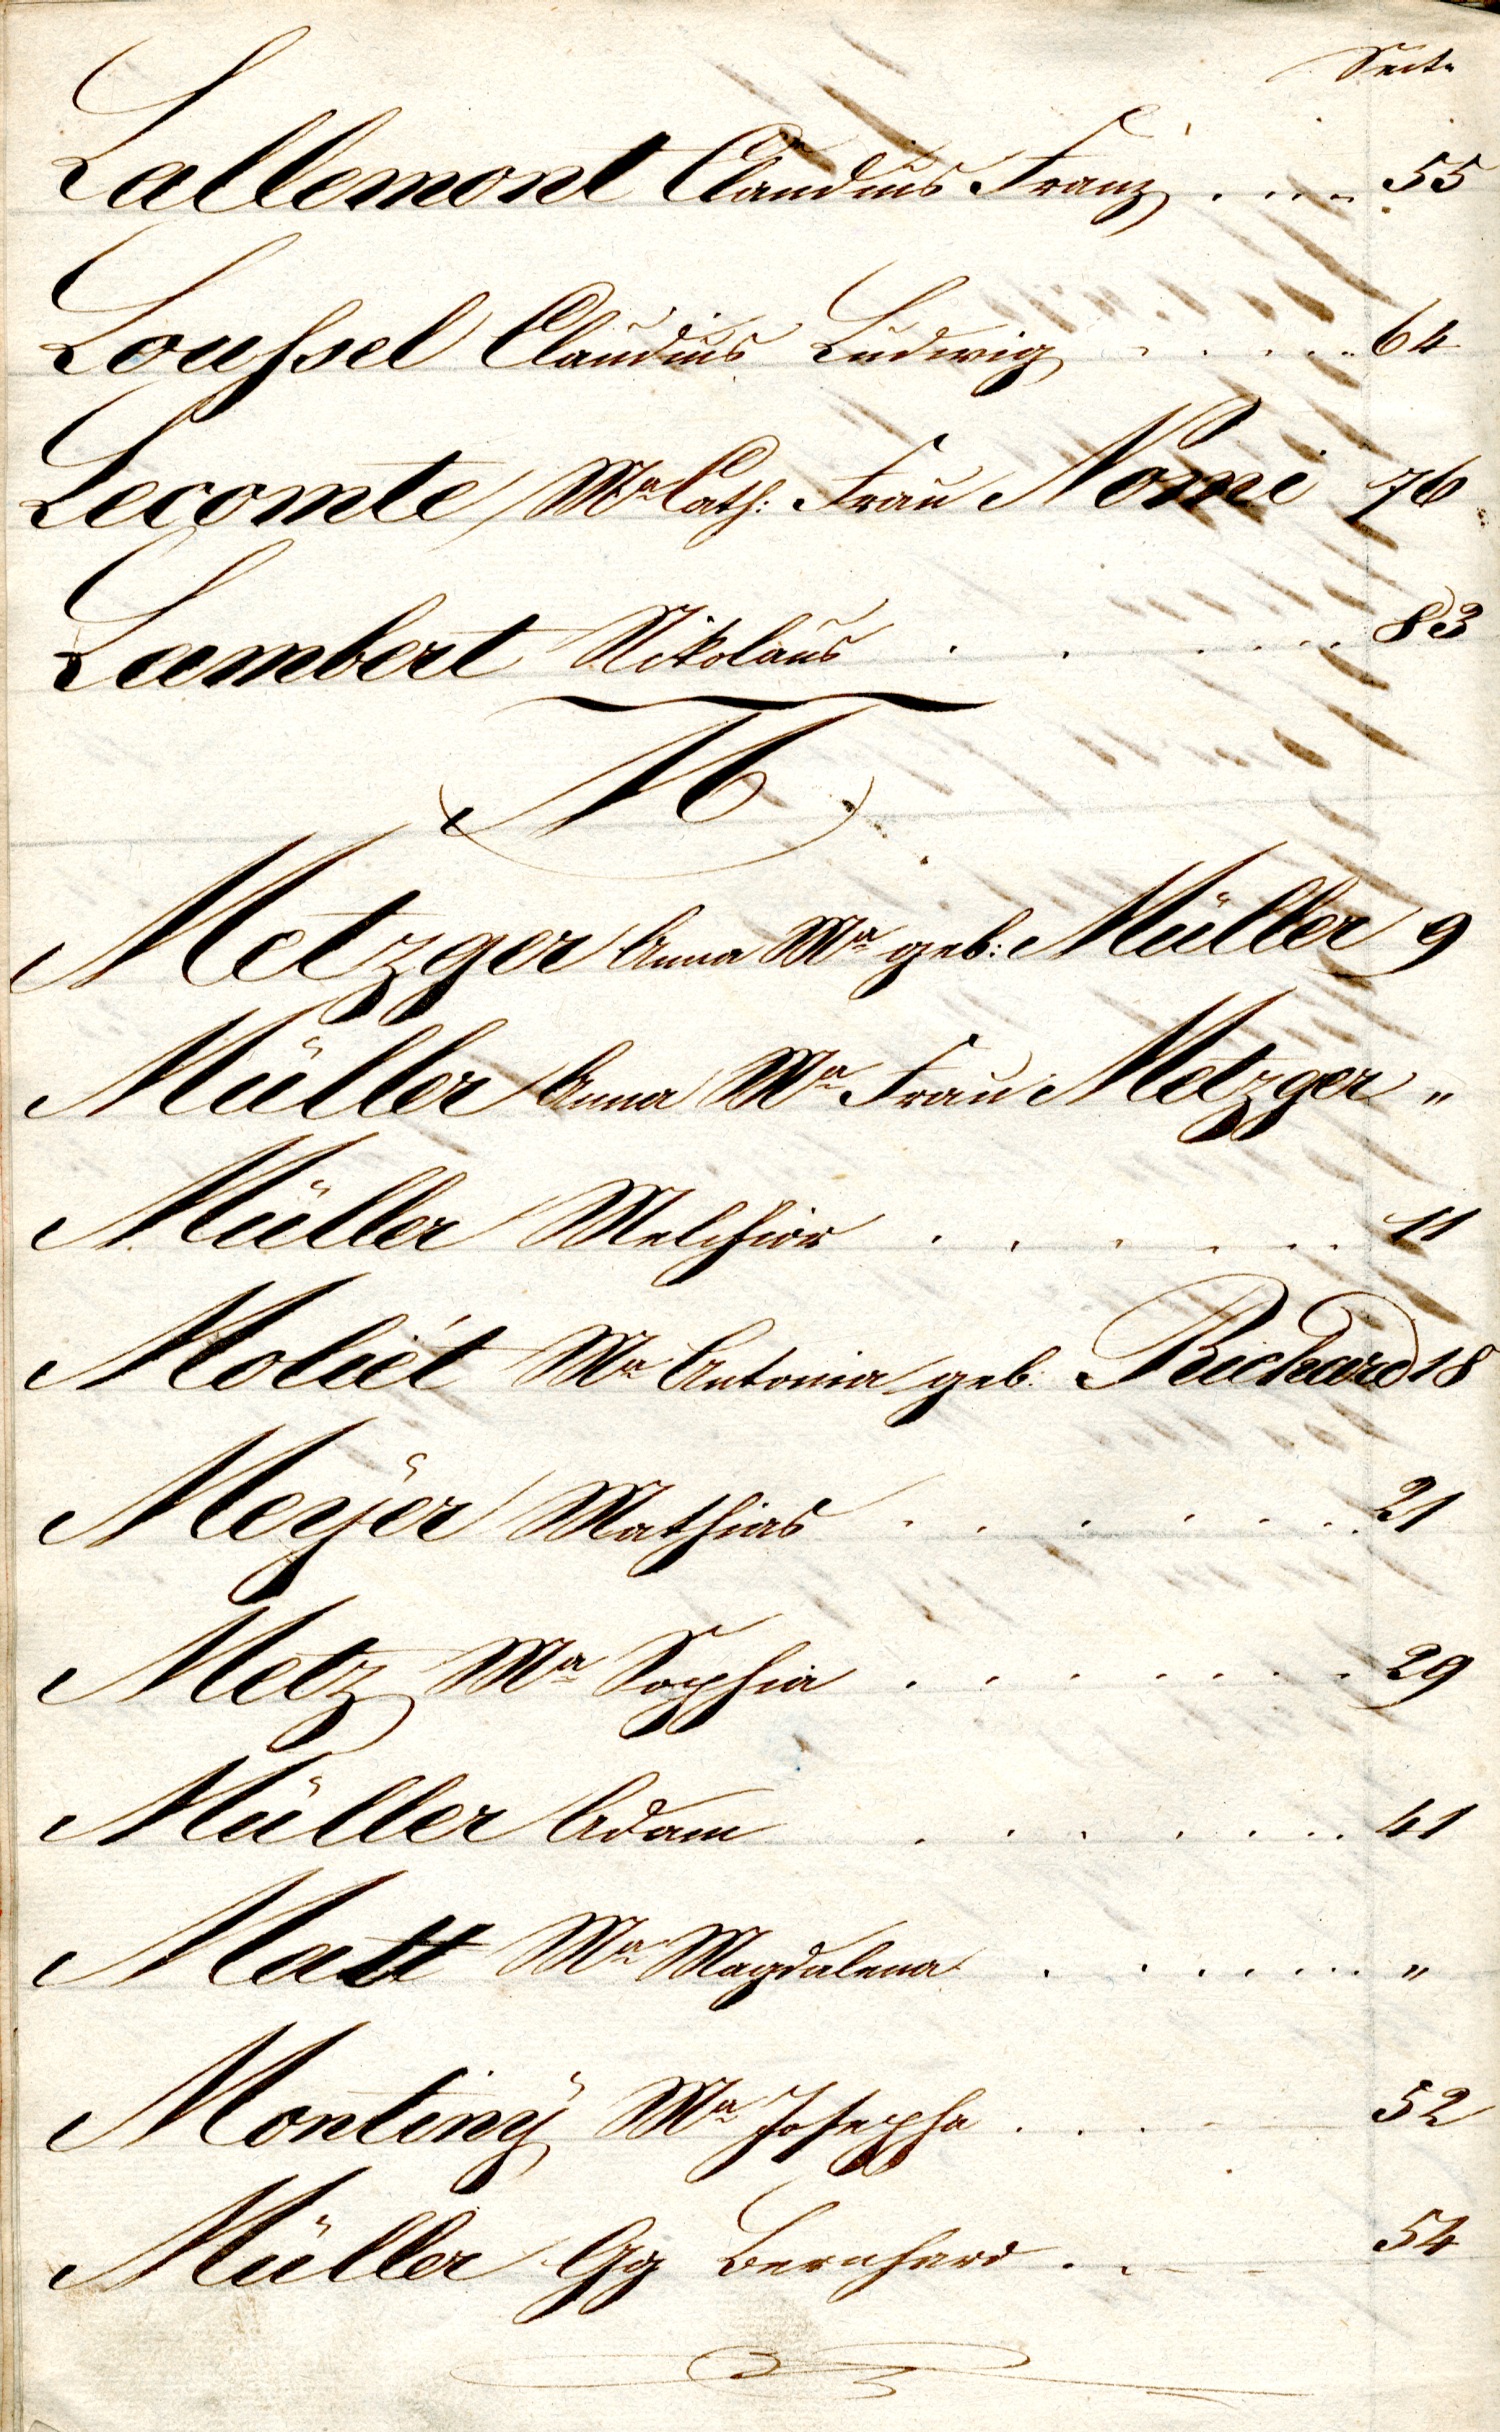 Seite
Lallemont Claudius Franz . . . . 55
Loußsel Claudius Ludwig . . . . . 64
Lecomte Mª Cath: Frau Nomi 76
Lambert Nikolaus . . . . . . 83
M
Metzger Anna Mª geb: Müller 9
Müller Anna Mª Frau Metzger "
Müller Melchior . . . . . . 11
Moliét Mª Antonia geb. Richard 18
Meÿer Mathias . . . . . . . 21
Metz Mª Sophia . . . . . . . 29
Müller Adam . . . . . . . 41
Matt Mª Magdalena . . . . . . . "
Montinÿ Mª Josepha . . . 52
Müller Gg Bernhard . . 54